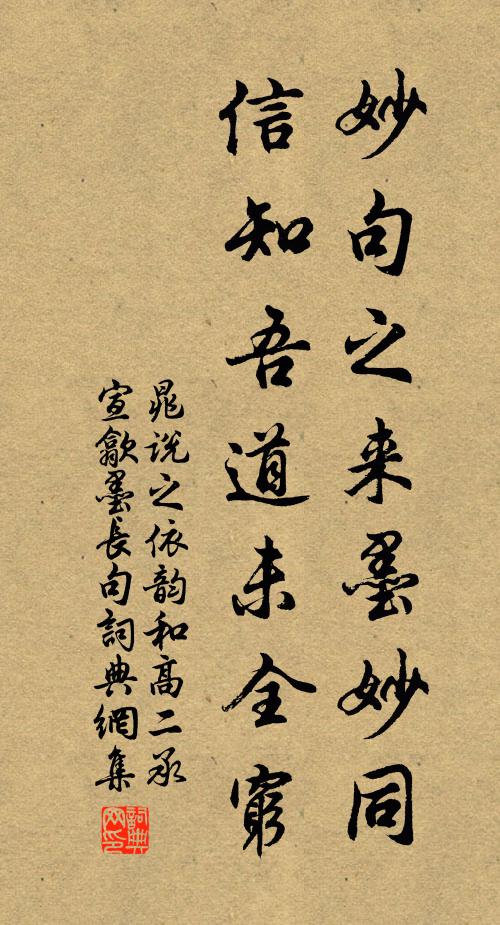 妙句之来墨妙同
信知吾道未全窮
晁说之依韵和高二承
宣歙墨長句詞典網集
詞典网印